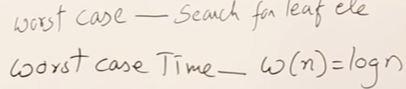 worst case — Search for leaf ele
worst case Time — ω(n) = logn